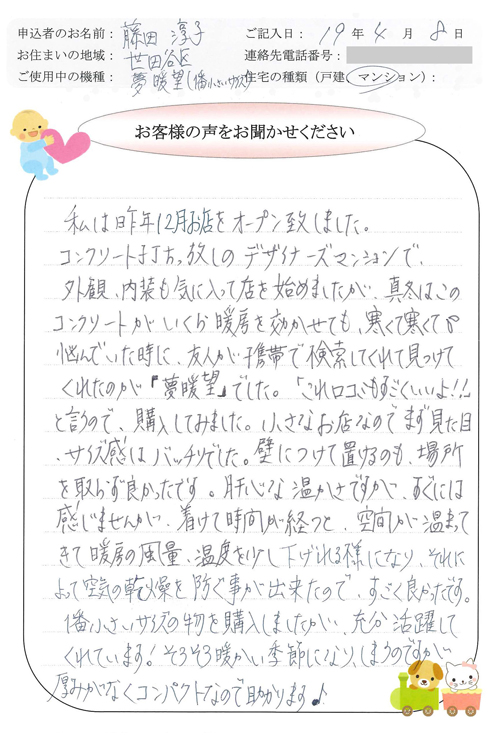 申込者のお名前： 藤田 淳子
ご記入日： 19 年 4 月 8 日
お住まいの地域： 世田谷区
連絡先電話番号：
ご使用中の機種： 夢暖望(1番小さいサイズ)
住宅の種類（戸建 マンション）：
お客様の声をお聞かせください
私は昨年12月お店をオープン致しました。
コンクリート打ちっ放しのデザイナーズマンションで、
外観、内装も気に入って店を始めましたが、真冬はこの
コンクリートがいくら暖房を効かせても、寒くて寒くて
悩んでいた時に、友人が携帯で検索してくれて見つけて
くれたのが「夢暖望」でした。「これ口コミもすごくいいよ!!」
と言うので、購入してみました。小さなお店なのでまず見た目
、サイズ感はバッチリでした。壁につけて置けるのも、場所
を取らず良かったです。肝心な温かさですが、すぐには
感じませんが、着けて時間が経つと、空間が温まって
きて暖房の風量、温度を少し下げれる様になり、それに
よって空気の乾燥を防ぐ事が出来たので、すごく良かったです。
1番小さいサイズの物を購入しましたが、充分活躍して
くれています！そろそろ暖かい季節になり、しまうのですが
厚みがなくコンパクトなので助かります♪